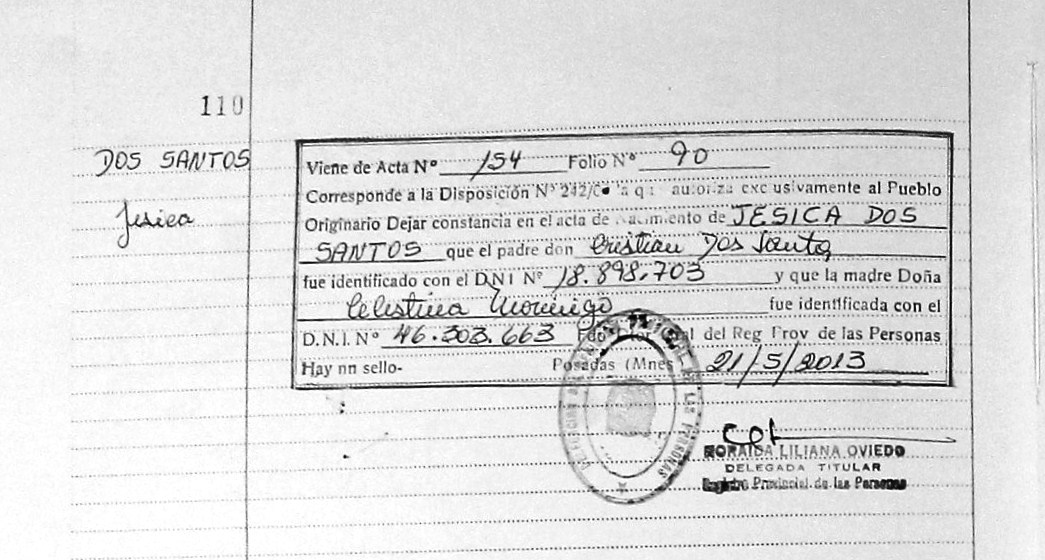 110
DOS SANTOS
Jesica
Viene de Acta Nº 154 Folio Nº 90
Corresponde a la Disposición Nº 242/0 a q autoriza exc usivamente al Pueblo
Originario Dejar constancia en el acta de Nacimiento de JESICA DOS
SANTOS que el padre don Cristian Dos Santos
fue identificado con el D.N.I Nº 18.898.703 y que la madre Doña
Celestina Morinigo fue identificada con el
D.N.I. Nº 46.303.663 del Reg Prov de las Personas
Hay un sello- Posadas (Mnes 21/5/2013
DE LAS PERSONAS
LILIANA OVIEDO
DELEGADA TITULAR
Registro Provincial de las Personas